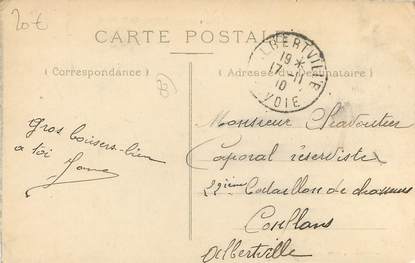 20€
CARTE POSTALE
ALBERTVILLE
19 *
17 - 11
10
VOIE
( Correspondance )
( Adresse du Destinataire )
Monsieur
Gros baisers
à toi
Caporal réserviste
22ième Bataillon de chasseurs
Conflans
Albertville